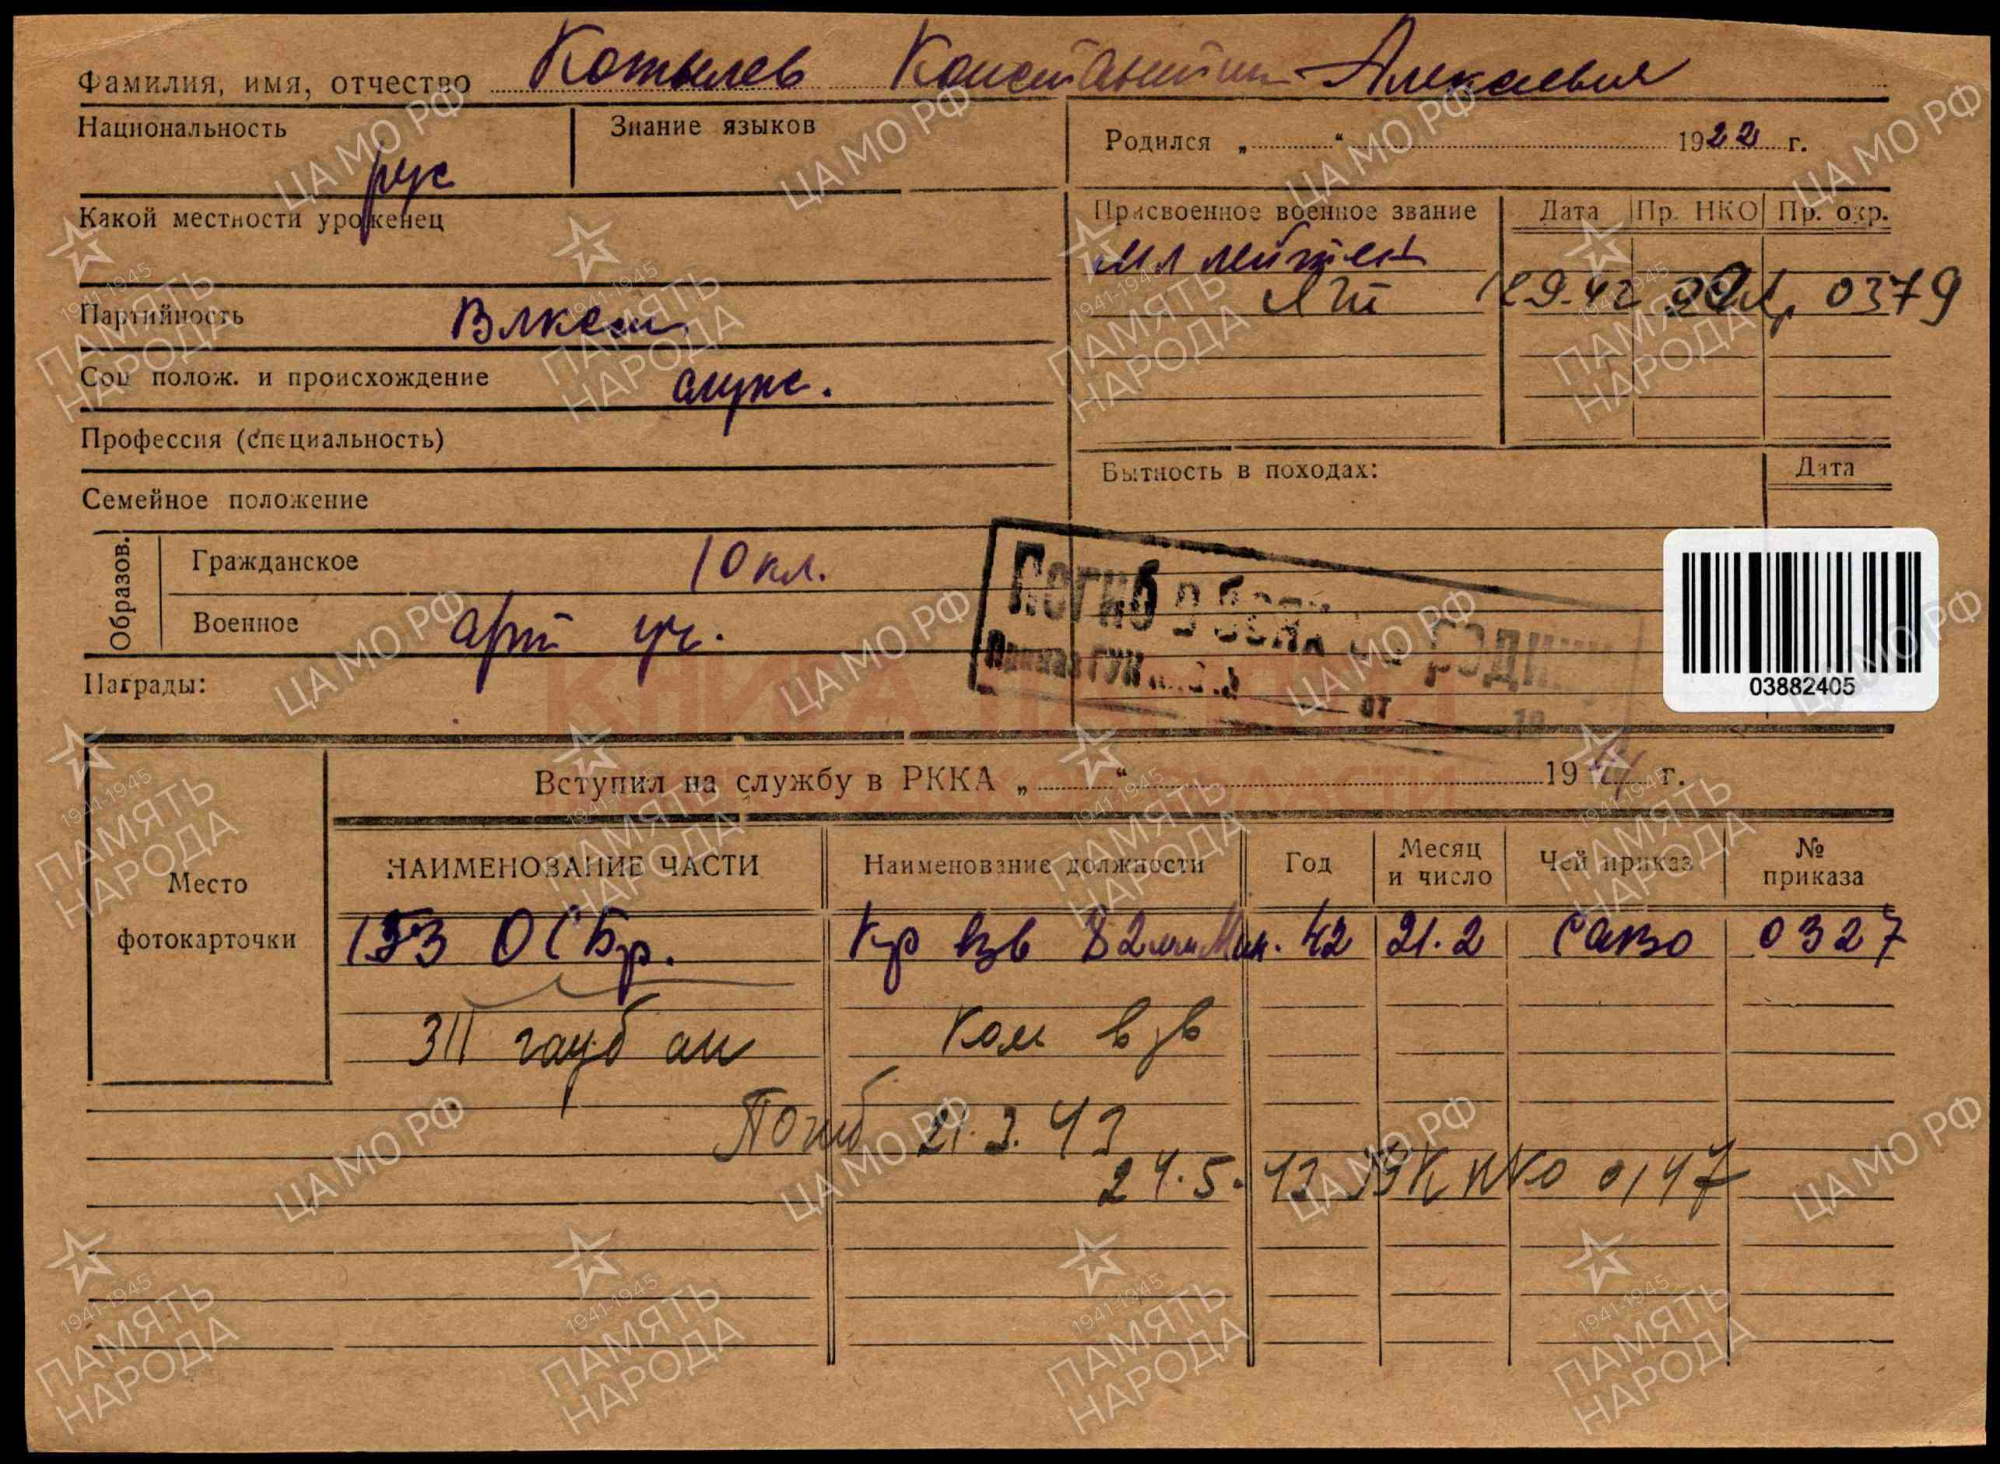 Фамилия, имя, отчество Котылев Константин Алексеевич
Национальность рус
Знание языков
Родился „ “ 1922 г.
Какой местности уроженец
Присвоенное военное звание Дата Пр. НКО Пр. окр.
мл лейтен
Лт 0379
Партийность Влксм
Соц полож. и происхождение служ.
Профессия (специальность)
Бытность в походах: Дата
Семейное положение
Образов.
Гражданское 10 кл.
Военное арт уч.
Награды:
Погиб в боях за Родину
Приказ ГУК НКО №
от 19
03882405
КНИГА ПАМЯТИ
Вступил на службу в РККА „ “ 1941 г.
Место
фотокарточки
НАИМЕНОВАНИЕ ЧАСТИ Наименование должности Год Месяц и число Чей приказ № приказа
153 ОСБр. Кр взв 82мм Мин. 42 21.2 САВО 0327
311 гауб ап Ком взв
Погиб 21.3.43
24.5.43 ГУК НКО 0147
ЦА МО РФ
1941-1945
ПАМЯТЬ
НАРОДА